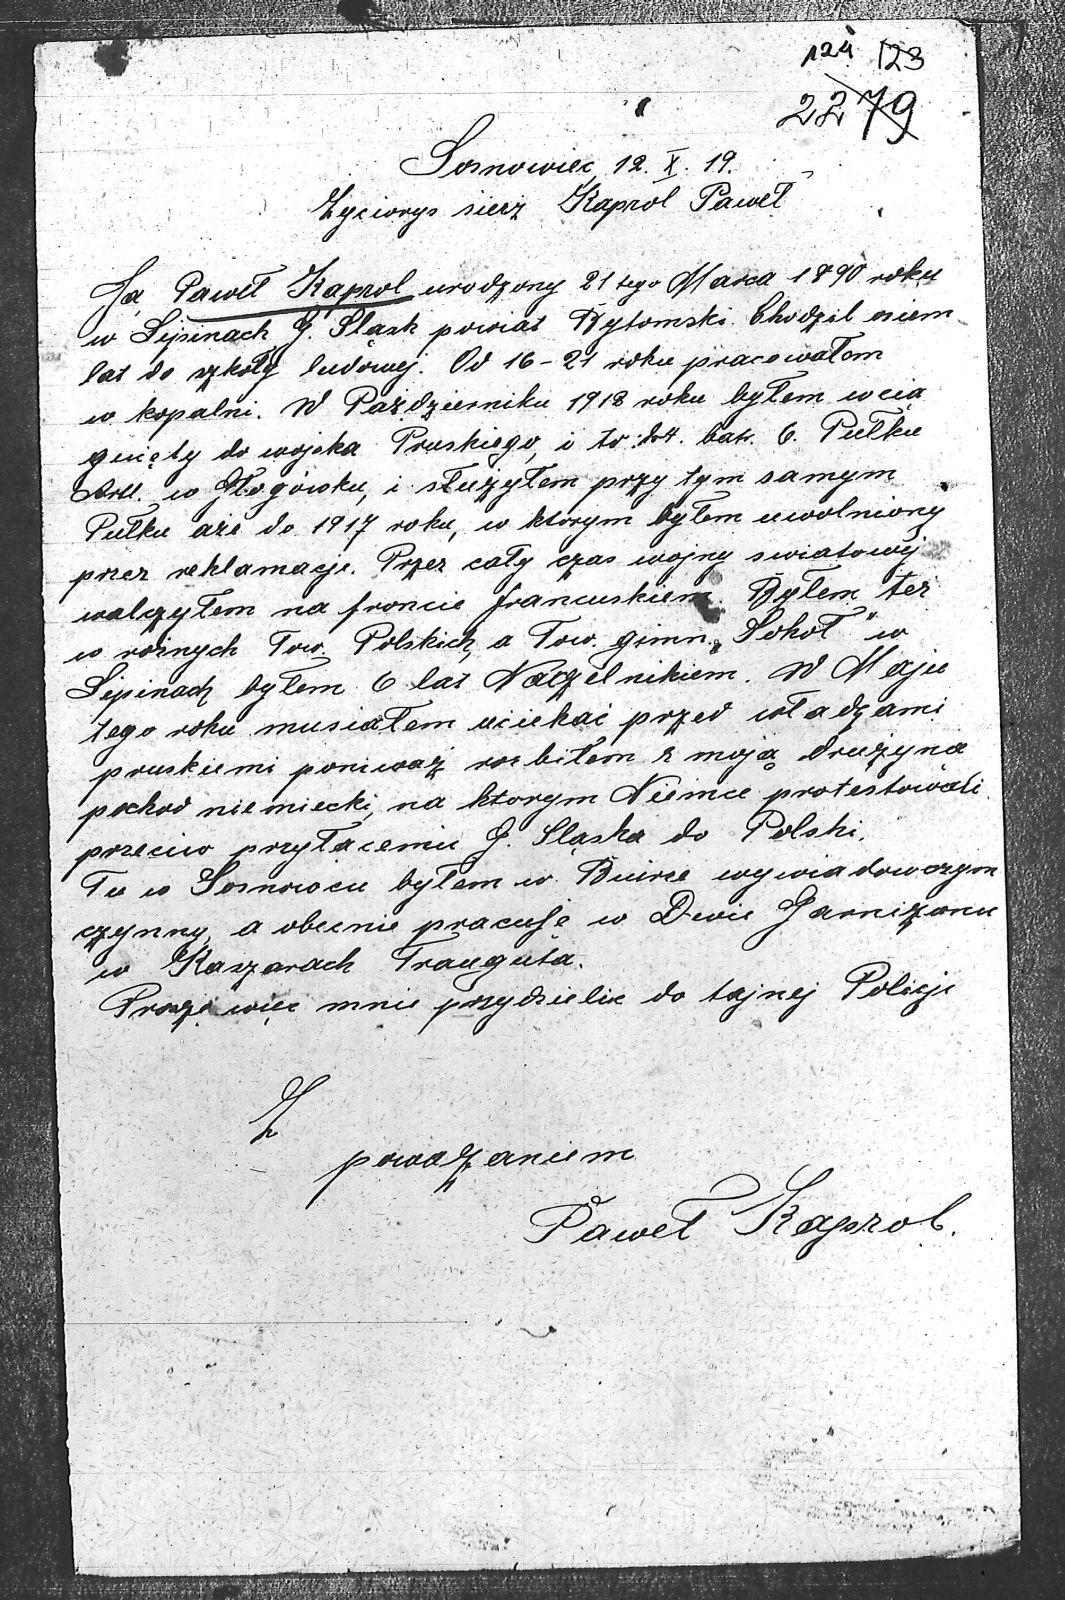 124 123
2279
Sosnowiec, 12. X. 19.
Życiorys sierż Kaprol Paweł
Ja Paweł Kaprol urodzony 21 tego Marca 1890 roku
w Lipinach G. Sląsk powiat Bytomski. Chodził osiem
lat do szkoły ludowej. Od 16-21 roku pracowałem
w kopalni. W Październiku 1912 roku byłem wcią
gnięty do wojska Pruskiego, i to do 4. batr. 6. Pułku
Artl. w Głogówku, i służyłem przy tym samym
Pułku aże do 1917 roku, w ktorym byłem uwolniony
przez reklamacje. Przez cały czas wojny swiatowej
walczyłem na froncie francuskiem. Byłem tez
w rożnych Tow. Polskich, a Tow. gimn. „Sokoł" w
Lipinach byłem 6 lat Naczelnikiem. W Maju
tego roku musiałem uciekać przed władzami
pruskiemi poniważ rozbiłem z moją drużyna
pochod niemiecki, na ktorym Niemce protestowali
przeciw przyłacemiu G. Sląska do Polski.
Tu w Sosnowcu byłem w Biurze wywiadowczym
czynny, a obecnie pracuje w Dwie Garnizonu
w Kaszarach Trauguta.
Proszę więc mnie przydzielic do tajnej Policji
Z
poważaniem
Paweł Kaprol.